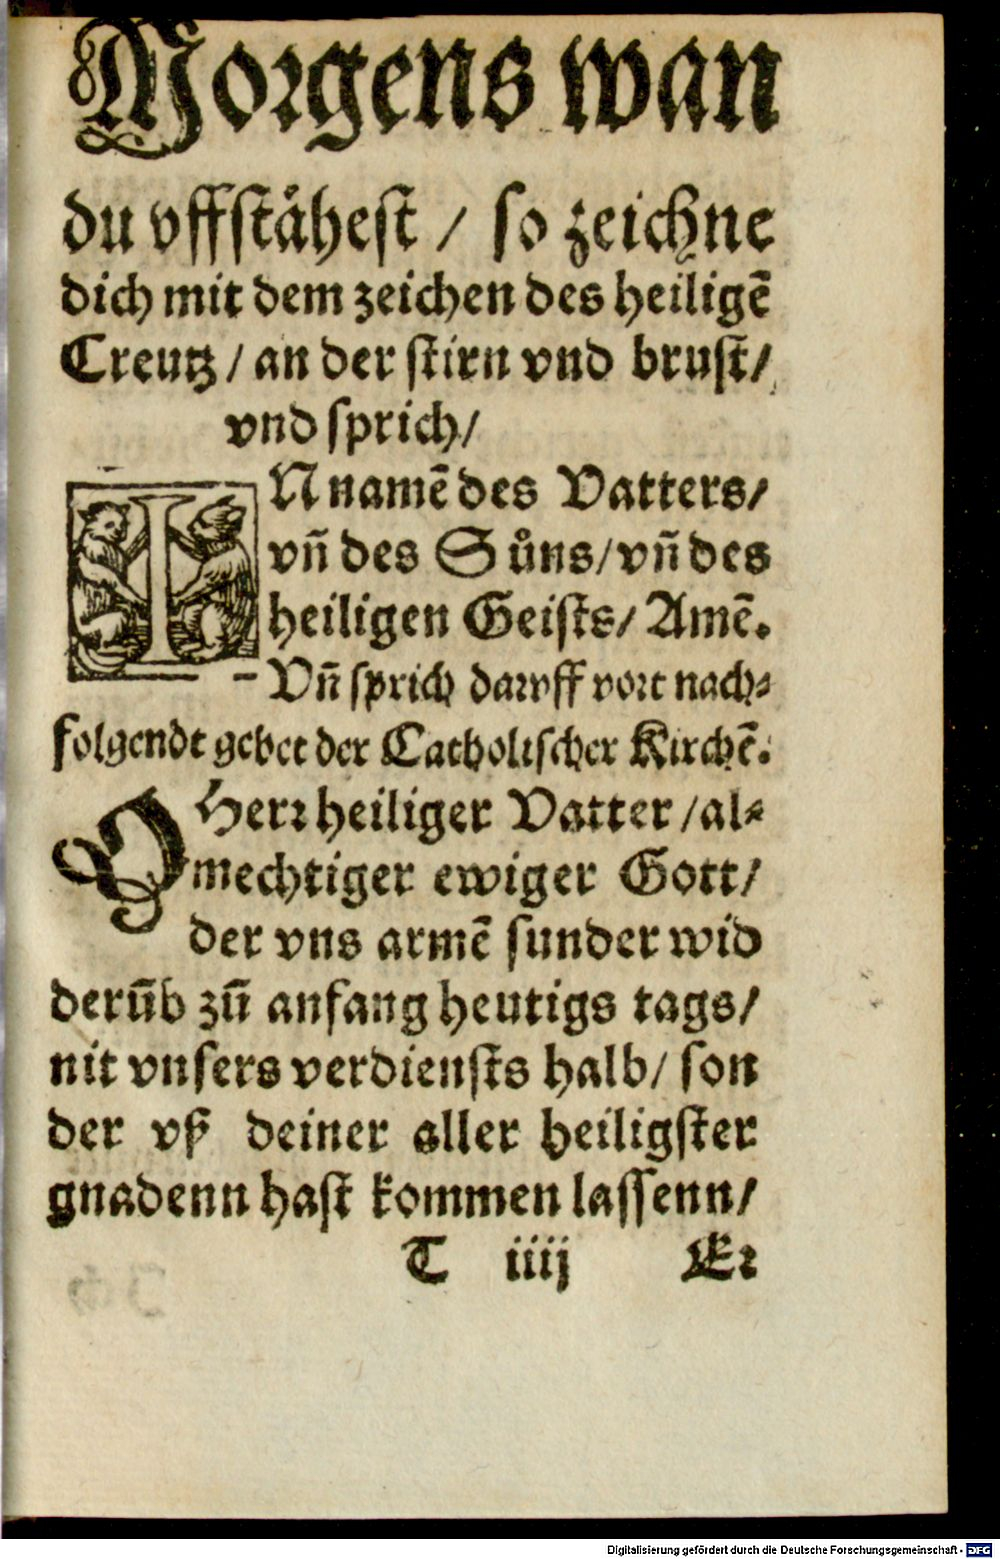 Morgens wan
du vffståhest / so zeichne
dich mit dem zeichen des heiligē
Creutz / an der stirn vnd brust /
vnd sprich /
IN namē des Vatters /
vñ des Sůns / vñ des
heiligen Geists / Amē.
Vñ sprich darvff vort nach⸗
folgendt gebet der Catholischer Kirchē.
O Herr heiliger Vatter / al⸗
mechtiger ewiger Gott /
der vns armē sunder wid
derūb zū anfang heutigs tags /
nit vnsers verdiensts halb / son
der vß deiner aller heiligster
gnadenn hast kommen lassenn /
T iiij Er
Digitalisierung gefördert durch die Deutsche Forschungsgemeinschaft - DFG